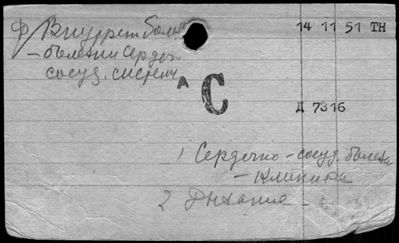 Ф Внутрен боле
– болезни сердеч
сосуд. систем
14 11 51 ТН
А С
Д 7316
1 Сердечно – сосуд. болезн
– клиника
2 Дыхание –